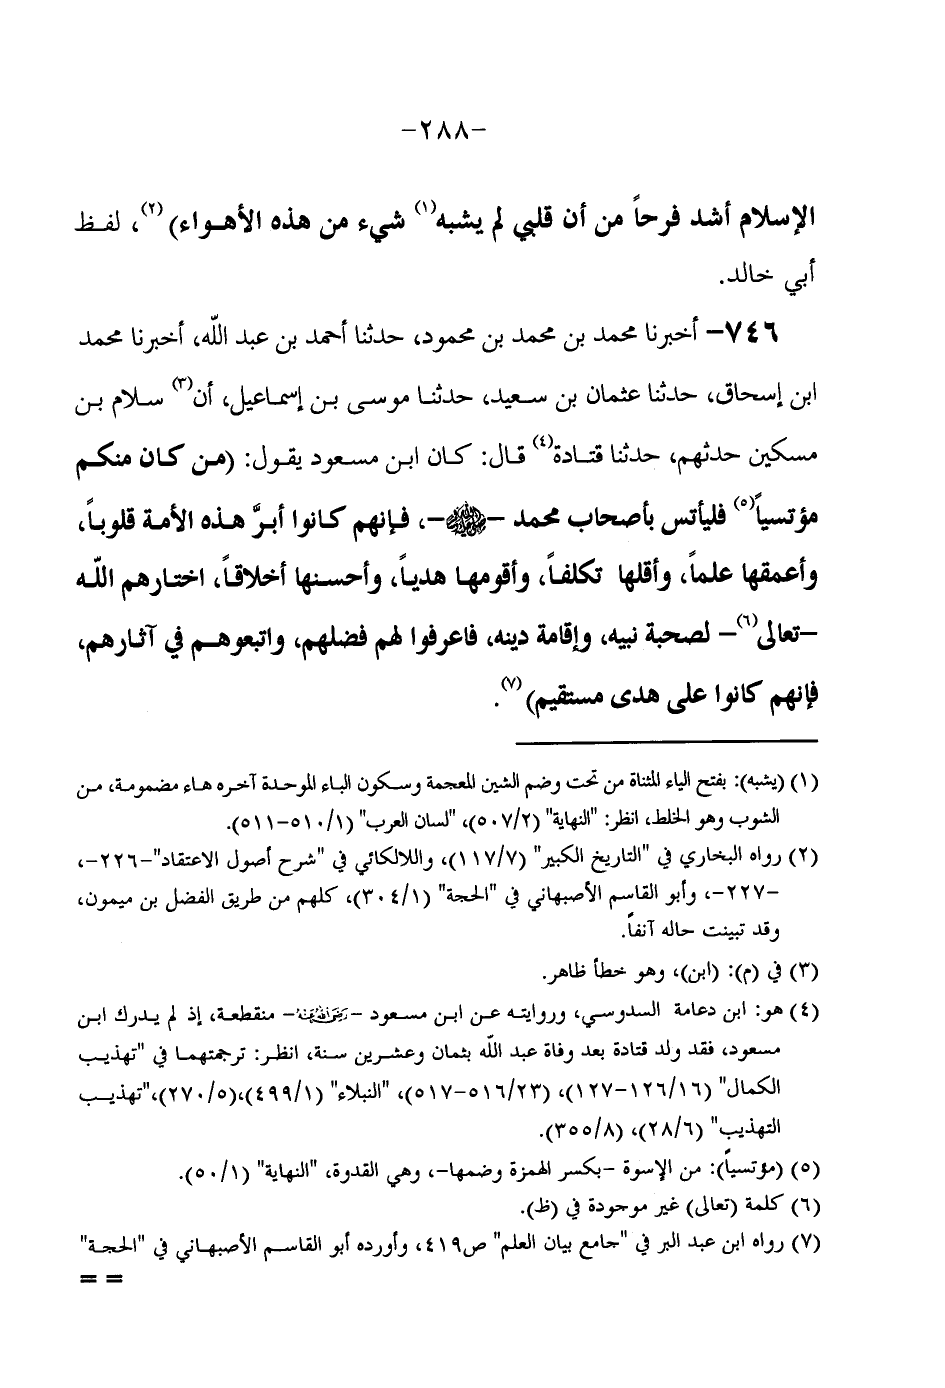 -٢٨٨-
الإسلام أشد فرحاً من أن قلبي لم يشبه(١) شيء من هذه الأهـواء)(٢)، لفـظ
أبي خالد.
٧٤٦- أخبرنا محمد بن محمد بن محمود، حدثنا أحمد بن عبد اللّه، أخبرنا محمد
ابن إسحاق، حدثنا عثمان بن سـعيد، حدثنـا موسـى بـن إسماعيل، أن(٣) سـلام بـن
مسكين حدثهم، حدثنا قتـادة(٤) قـال: كـان ابـن مسـعود يقـول: (مـن كـان منكـم
مؤتسياً(٥) فليأتس بأصحاب محمد -ﷺ-، فـإنهم كـانوا أبـرَّ هـذه الأمـة قلوبـاً،
وأعمقها علمـاً، وأقلها تكلفـاً، وأقومهـا هديـاً، وأحسـنها أخلاقـاً، اختـارهم اللّـه
-تعالى(٦)- لصحبة نبيه، وإقامة دينه، فاعرفوا لهم فضلهم، واتبعوهـم في آثـارهم،
فإنهم كانوا على هدى مستقيم)(٧).
(١) (يشبه): بفتح الياء المثناة من تحت وضم الشين المعجمة وسـكون البـاء الموحـدة آخـره هـاء مضمومـة، مـن
الشوب وهو الخلط، انظر: "النهاية" (٥٠٧/٢)، "لسان العرب" (٥١٠/١-٥١١).
(٢) رواه البخاري في "التاريخ الكبير" (١١٧/٧)، واللالكائي في "شرح أصول الاعتقاد"-٢٢٦-،
-٢٢٧-، وأبو القاسم الأصبهاني في "الحجة" (٣٠٤/١)، كلهم من طريق الفضل بن ميمون،
وقد تبينت حاله آنفاً.
(٣) في (م): (ابن)، وهو خطأ ظاهر.
(٤) هو: ابن دعامة السدوسي، وروايتـه عـن ابـن مسـعود -رضي الله عنه- منقطعـة، إذ لم يـدرك ابـن
مسعود، فقد ولد قتادة بعد وفاة عبد اللّه بثمان وعشـرين سـنة، انظـر: ترجمتهمـا في "تهذيـب
الكمال" (١٢٦/١٦-١٢٧)، (٥١٦/٢٣-٥١٧)، "النبلاء" (٤٩٩/١)،(٢٧٠/٥)،"تهذيـب
التهذيب" (٢٨/٦)، (٣٥٥/٨).
(٥) (مؤتسياً): من الإسوة -بكسر الهمزة وضمها-، وهي القدوة، "النهاية" (٥٠/١).
(٦) كلمة (تعالى) غير موجودة في (ظ).
(٧) رواه ابن عبد البر في "جامع بيان العلم" ص٤١٩، وأورده أبو القاسـم الأصبهـاني في "الحجـة"
= =